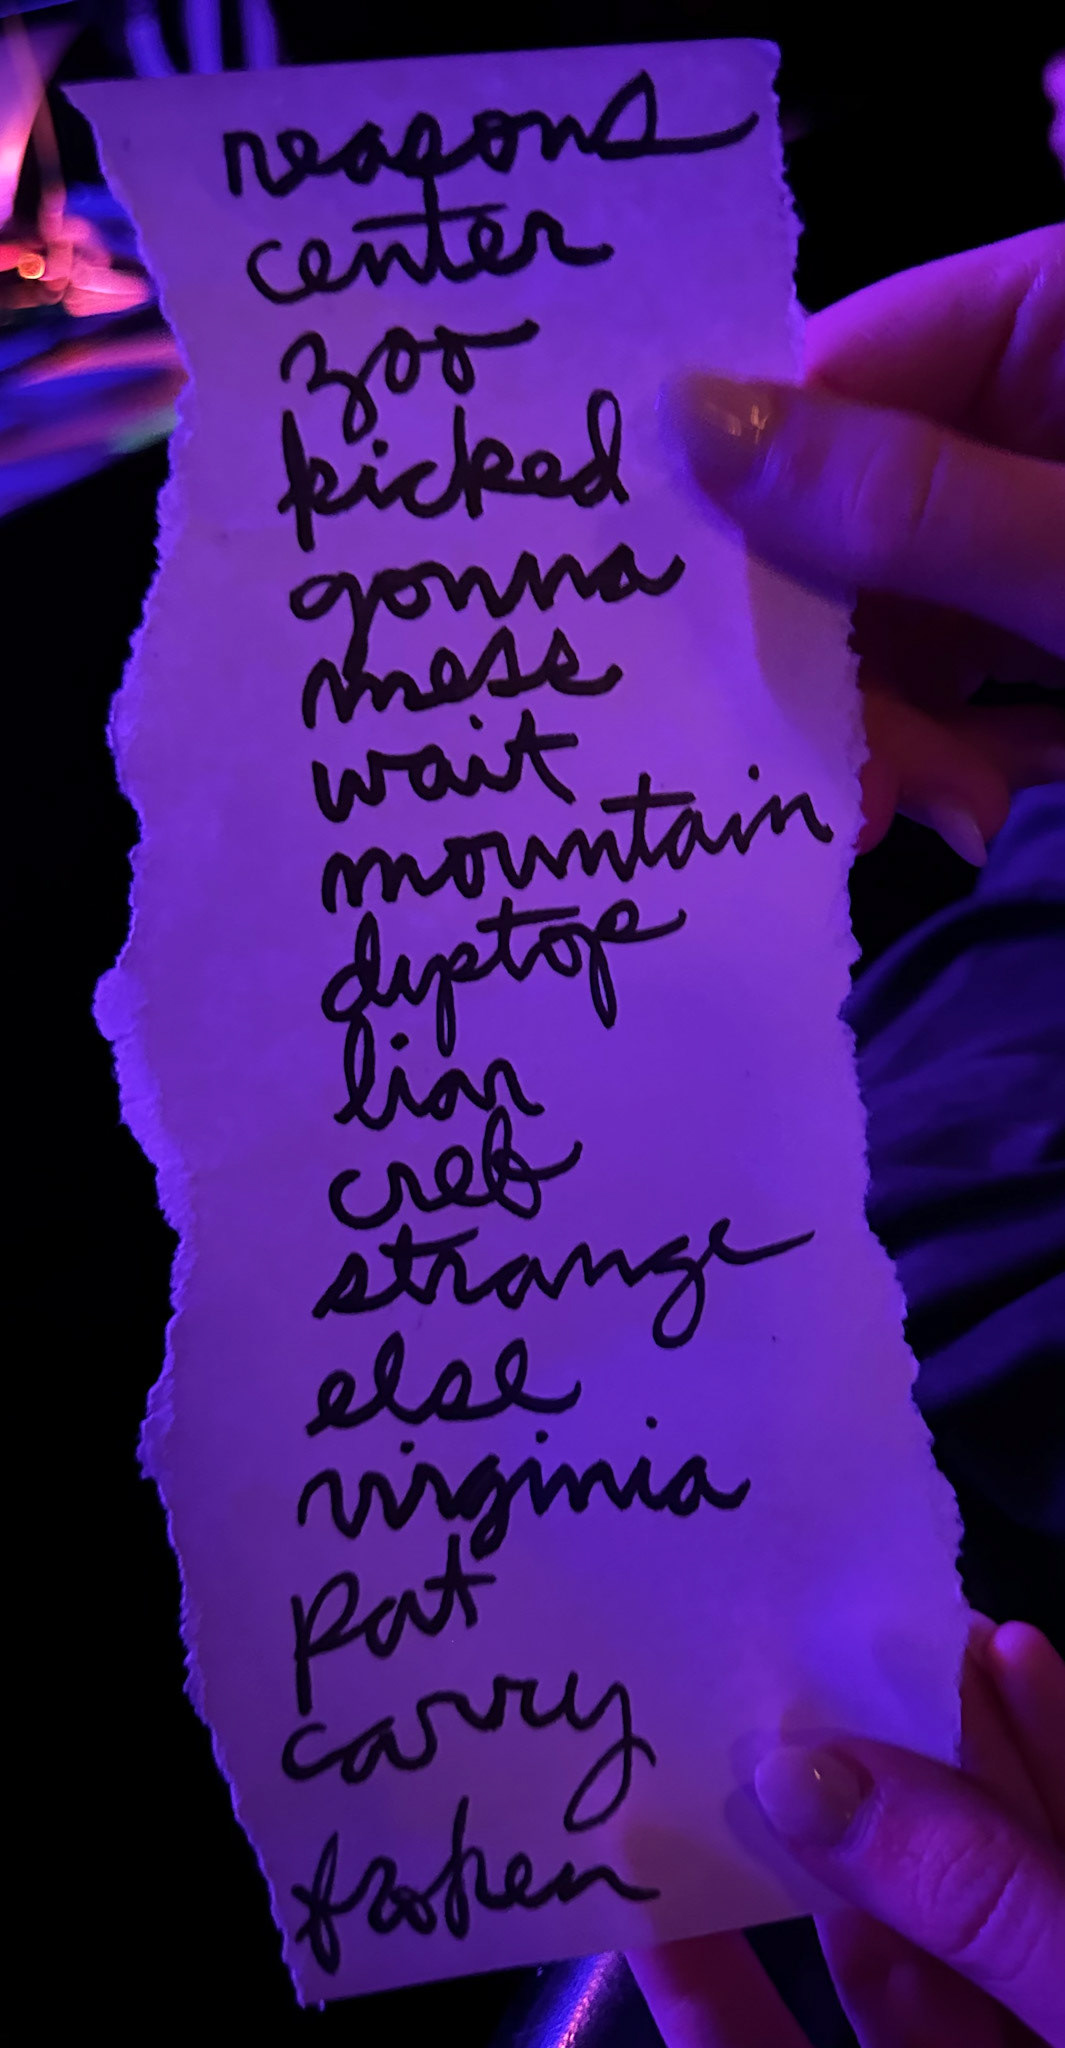 reasons
center
zoo
kicked
gonna
mess
wait
mountain
dystop
liar
strange
else
virginia
pat
carry